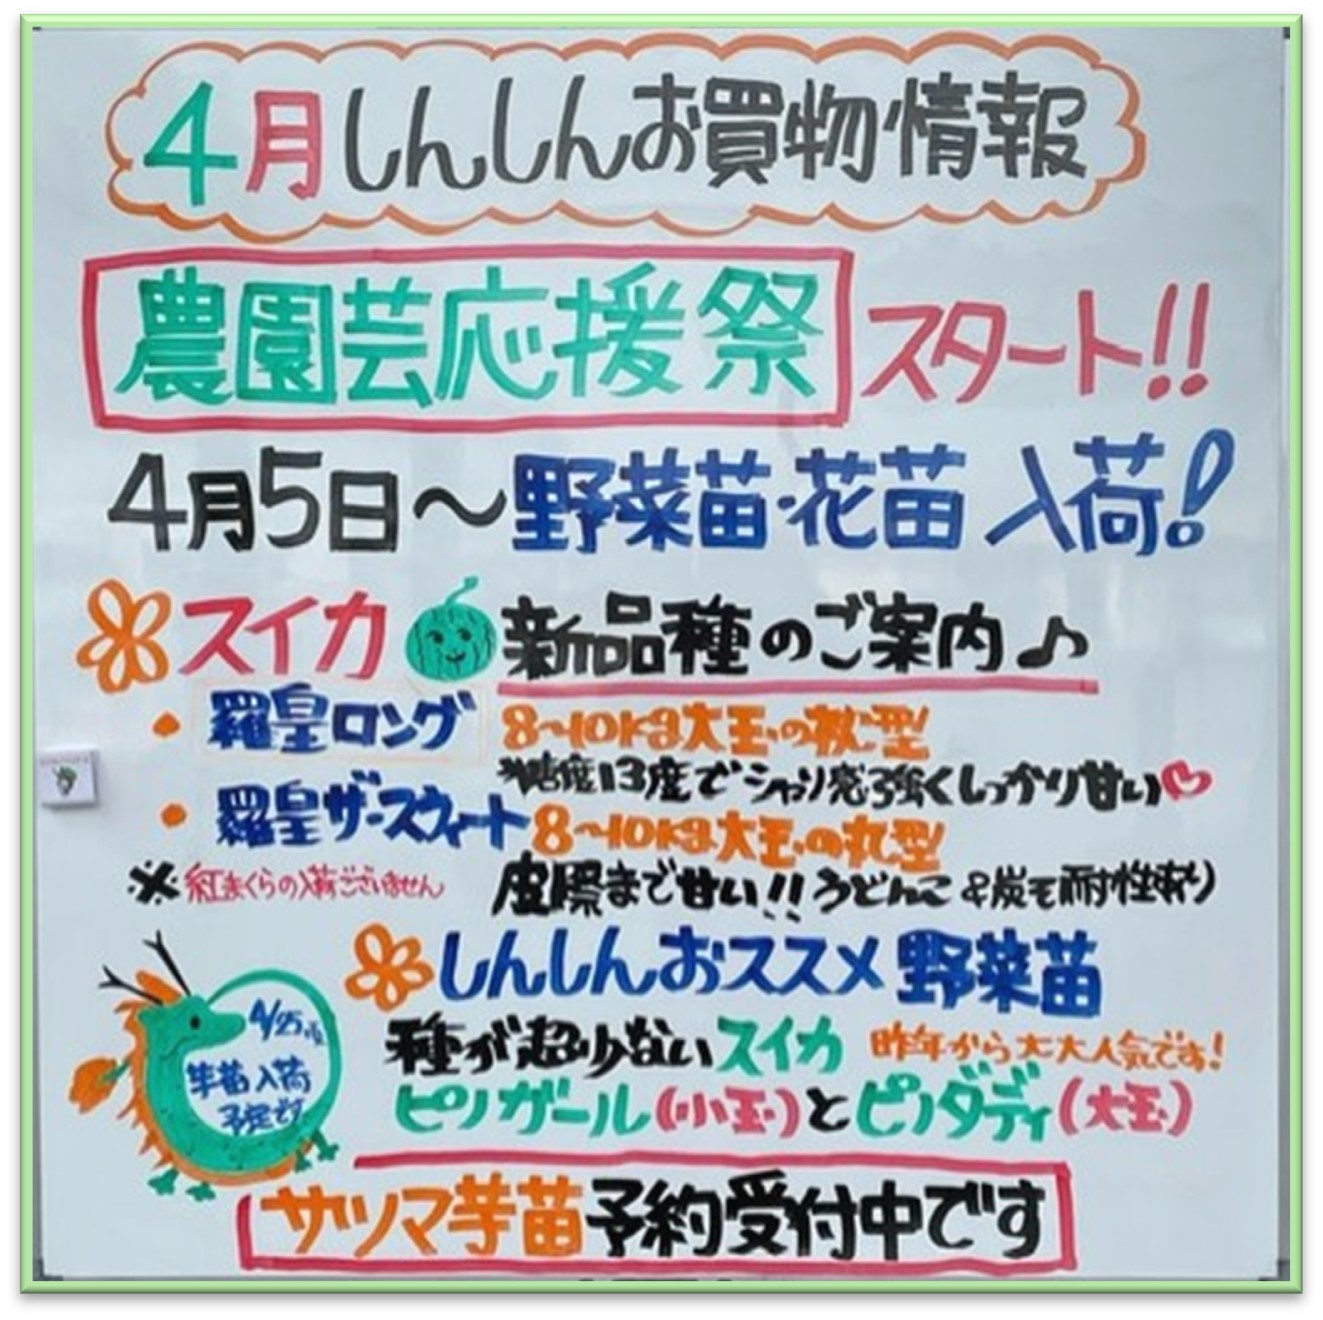 4月しんしんお買物情報
農園芸応援祭 スタート!!
4月5日〜野菜苗・花苗 入荷!
スイカ 新品種のご案内♪
・羅皇ロング 8〜10kg大玉の枕型
糖度13度でシャリ感強くしっかり甘い♡
・羅皇ザ・スウィート 8〜10kg大玉の丸型
※紅まくらの入荷ございません 皮際まで甘い!!うどんこ&炭そ耐性あり
しんしんおススメ 野菜苗
4/25頃
芋苗入荷
予定です
種が超少ないスイカ 昨年から大大人気です!
ピノガール(小玉)とピノダディ(大玉)
サツマ芋苗予約受付中です